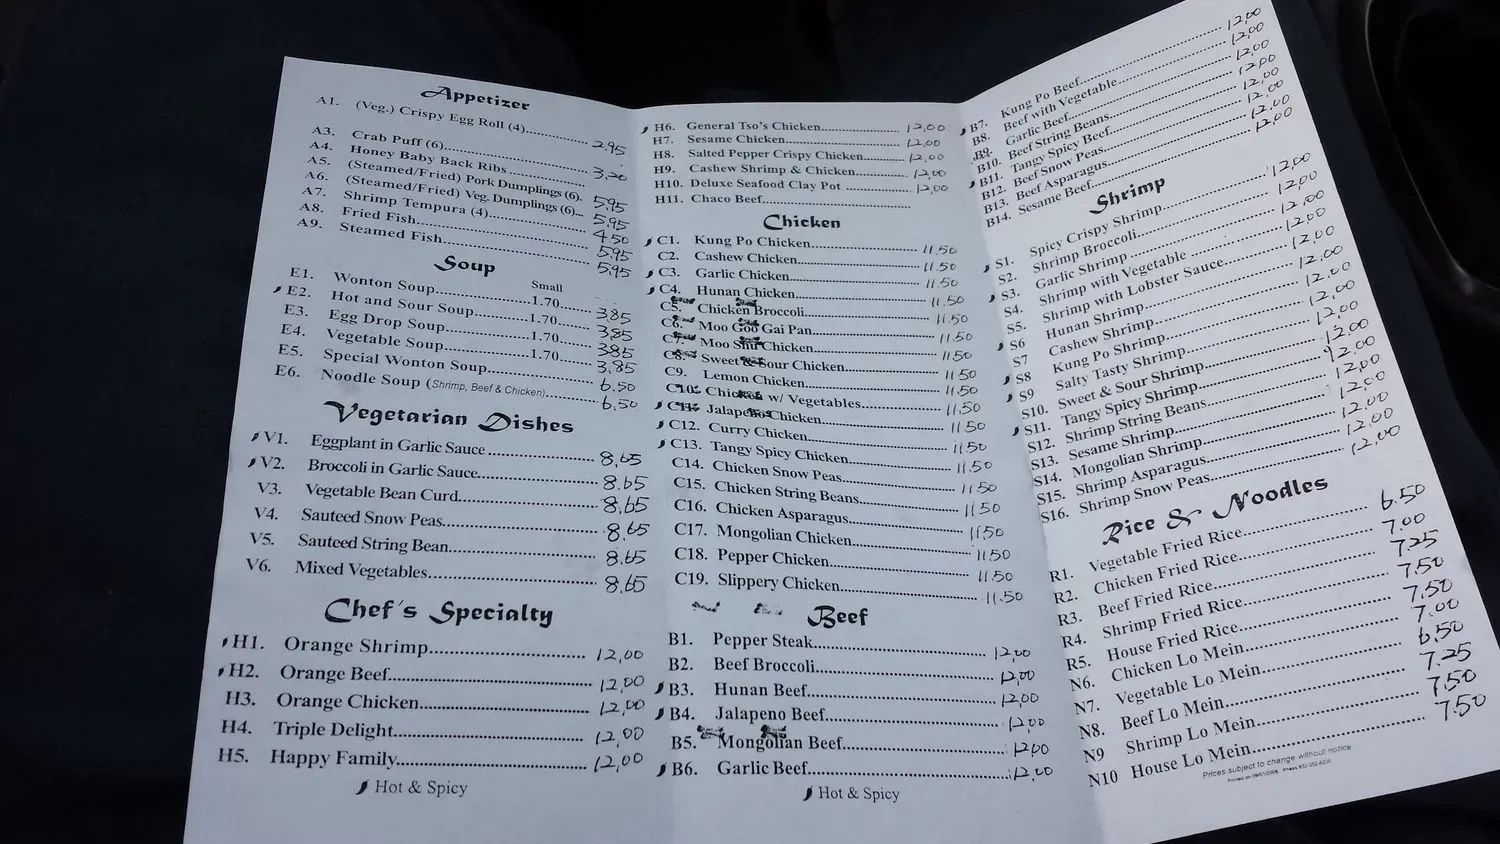 Appetizer
A1. (Veg.) Crispy Egg Roll (4) 2.95
A3. Crab Puff (6) 3.20
A4. Honey Baby Back Ribs
A5. (Steamed/Fried) Pork Dumplings (6). 5.95
A6. (Steamed/Fried) Veg. Dumplings (6) 5.95
A7. Shrimp Tempura (4) 4.50
A8. Fried Fish 5.95
A9. Steamed Fish 5.95
Soup
Small
E1. Wonton Soup 1.70 3.85
E2. Hot and Sour Soup 1.70 3.85
E3. Egg Drop Soup 1.70 3.85
E4. Vegetable Soup 1.70 3.85
E5. Special Wonton Soup 6.50
E6. Noodle Soup (Shrimp, Beef & Chicken) 6.50
Vegetarian Dishes
V1. Eggplant in Garlic Sauce 8.65
V2. Broccoli in Garlic Sauce 8.65
V3. Vegetable Bean Curd 8.65
V4. Sauteed Snow Peas 8.65
V5. Sauteed String Bean 8.65
V6. Mixed Vegetables 8.65
Chef's Specialty
H1. Orange Shrimp 12.00
H2. Orange Beef 12.00
H3. Orange Chicken 12.00
H4. Triple Delight 12.00
H5. Happy Family 12.00
Hot & Spicy
H6. General Tso's Chicken 12.00
H7. Sesame Chicken 12.00
H8. Salted Pepper Crispy Chicken 12.00
H9. Cashew Shrimp & Chicken 12.00
H10. Deluxe Seafood Clay Pot 12.00
H11. Chaco Beef
Chicken
C1. Kung Po Chicken 11.50
C2. Cashew Chicken 11.50
C3. Garlic Chicken 11.50
C4. Hunan Chicken 11.50
C5. Chicken Broccoli 11.50
C6. Moo Goo Gai Pan 11.50
C7. Moo Shu Chicken 11.50
C8. Sweet & Sour Chicken 11.50
C9. Lemon Chicken 11.50
C10. Chicken w/ Vegetables 11.50
C11. Jalapeno Chicken 11.50
C12. Curry Chicken 11.50
C13. Tangy Spicy Chicken 11.50
C14. Chicken Snow Peas 11.50
C15. Chicken String Beans 11.50
C16. Chicken Asparagus 11.50
C17. Mongolian Chicken 11.50
C18. Pepper Chicken 11.50
C19. Slippery Chicken 11.50
Beef
B1. Pepper Steak 12.00
B2. Beef Broccoli 12.00
B3. Hunan Beef 12.00
B4. Jalapeno Beef 12.00
B5. Mongolian Beef 12.00
B6. Garlic Beef 12.00
Hot & Spicy
B7. Kung Po Beef 12.00
B8. Beef with Vegetable 12.00
B9. Garlic Beef 12.00
B10. Beef String Beans 12.00
B11. Tangy Spicy Beef 12.00
B12. Beef Snow Peas 12.00
B13. Beef Asparagus 12.00
B14. Sesame Beef 12.00
Shrimp
S1. Spicy Crispy Shrimp 12.00
S2. Shrimp Broccoli 12.00
S3. Garlic Shrimp 12.00
S4. Shrimp with Vegetable 12.00
S5. Shrimp with Lobster Sauce 12.00
S6 Hunan Shrimp 12.00
S7 Cashew Shrimp 12.00
S8 Kung Po Shrimp 12.00
S9 Salty Tasty Shrimp 12.00
S10. Sweet & Sour Shrimp 12.00
S11. Tangy Spicy Shrimp 12.00
S12. Shrimp String Beans 12.00
S13. Sesame Shrimp 12.00
S14. Mongolian Shrimp 12.00
S15. Shrimp Asparagus 12.00
S16. Shrimp Snow Peas 12.00
Rice & Noodles
R1. Vegetable Fried Rice 6.50
R2. Chicken Fried Rice 7.00
R3. Beef Fried Rice 7.25
R4. Shrimp Fried Rice 7.50
R5. House Fried Rice 7.50
N6. Chicken Lo Mein 7.00
N7. Vegetable Lo Mein 6.50
N8. Beef Lo Mein 7.25
N9 Shrimp Lo Mein 7.50
N10 House Lo Mein 7.50
Prices subject to change without notice